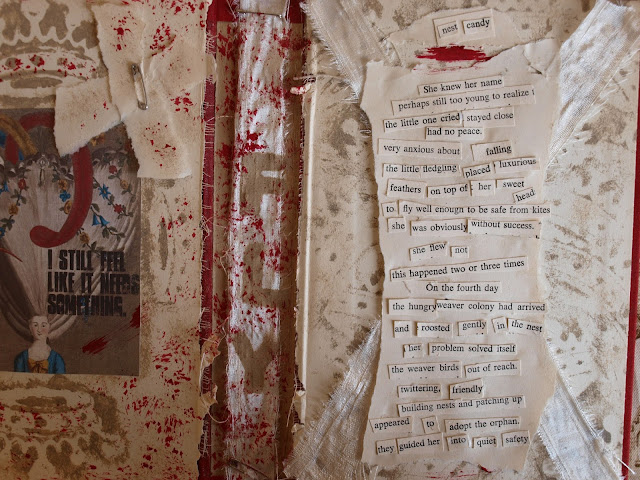 I STILL FEEL
LIKE IT NEEDS
SOMETHING.
nest candy
She knew her name
perhaps still too young to realize
the little one cried stayed close
had no peace.
very anxious about falling
the little fledging placed luxurious
feathers on top of her sweet
head
to fly well enough to be safe from kites
she was obviously without success.
she flew not
this happened two or three times
On the fourth day
the hungry weaver colony had arrived
and roosted gently in the nest
her problem solved itself
the weaver birds out of reach.
twittering, friendly
building nests and patching up
appeared to adopt the orphan.
they guided her into quiet safety